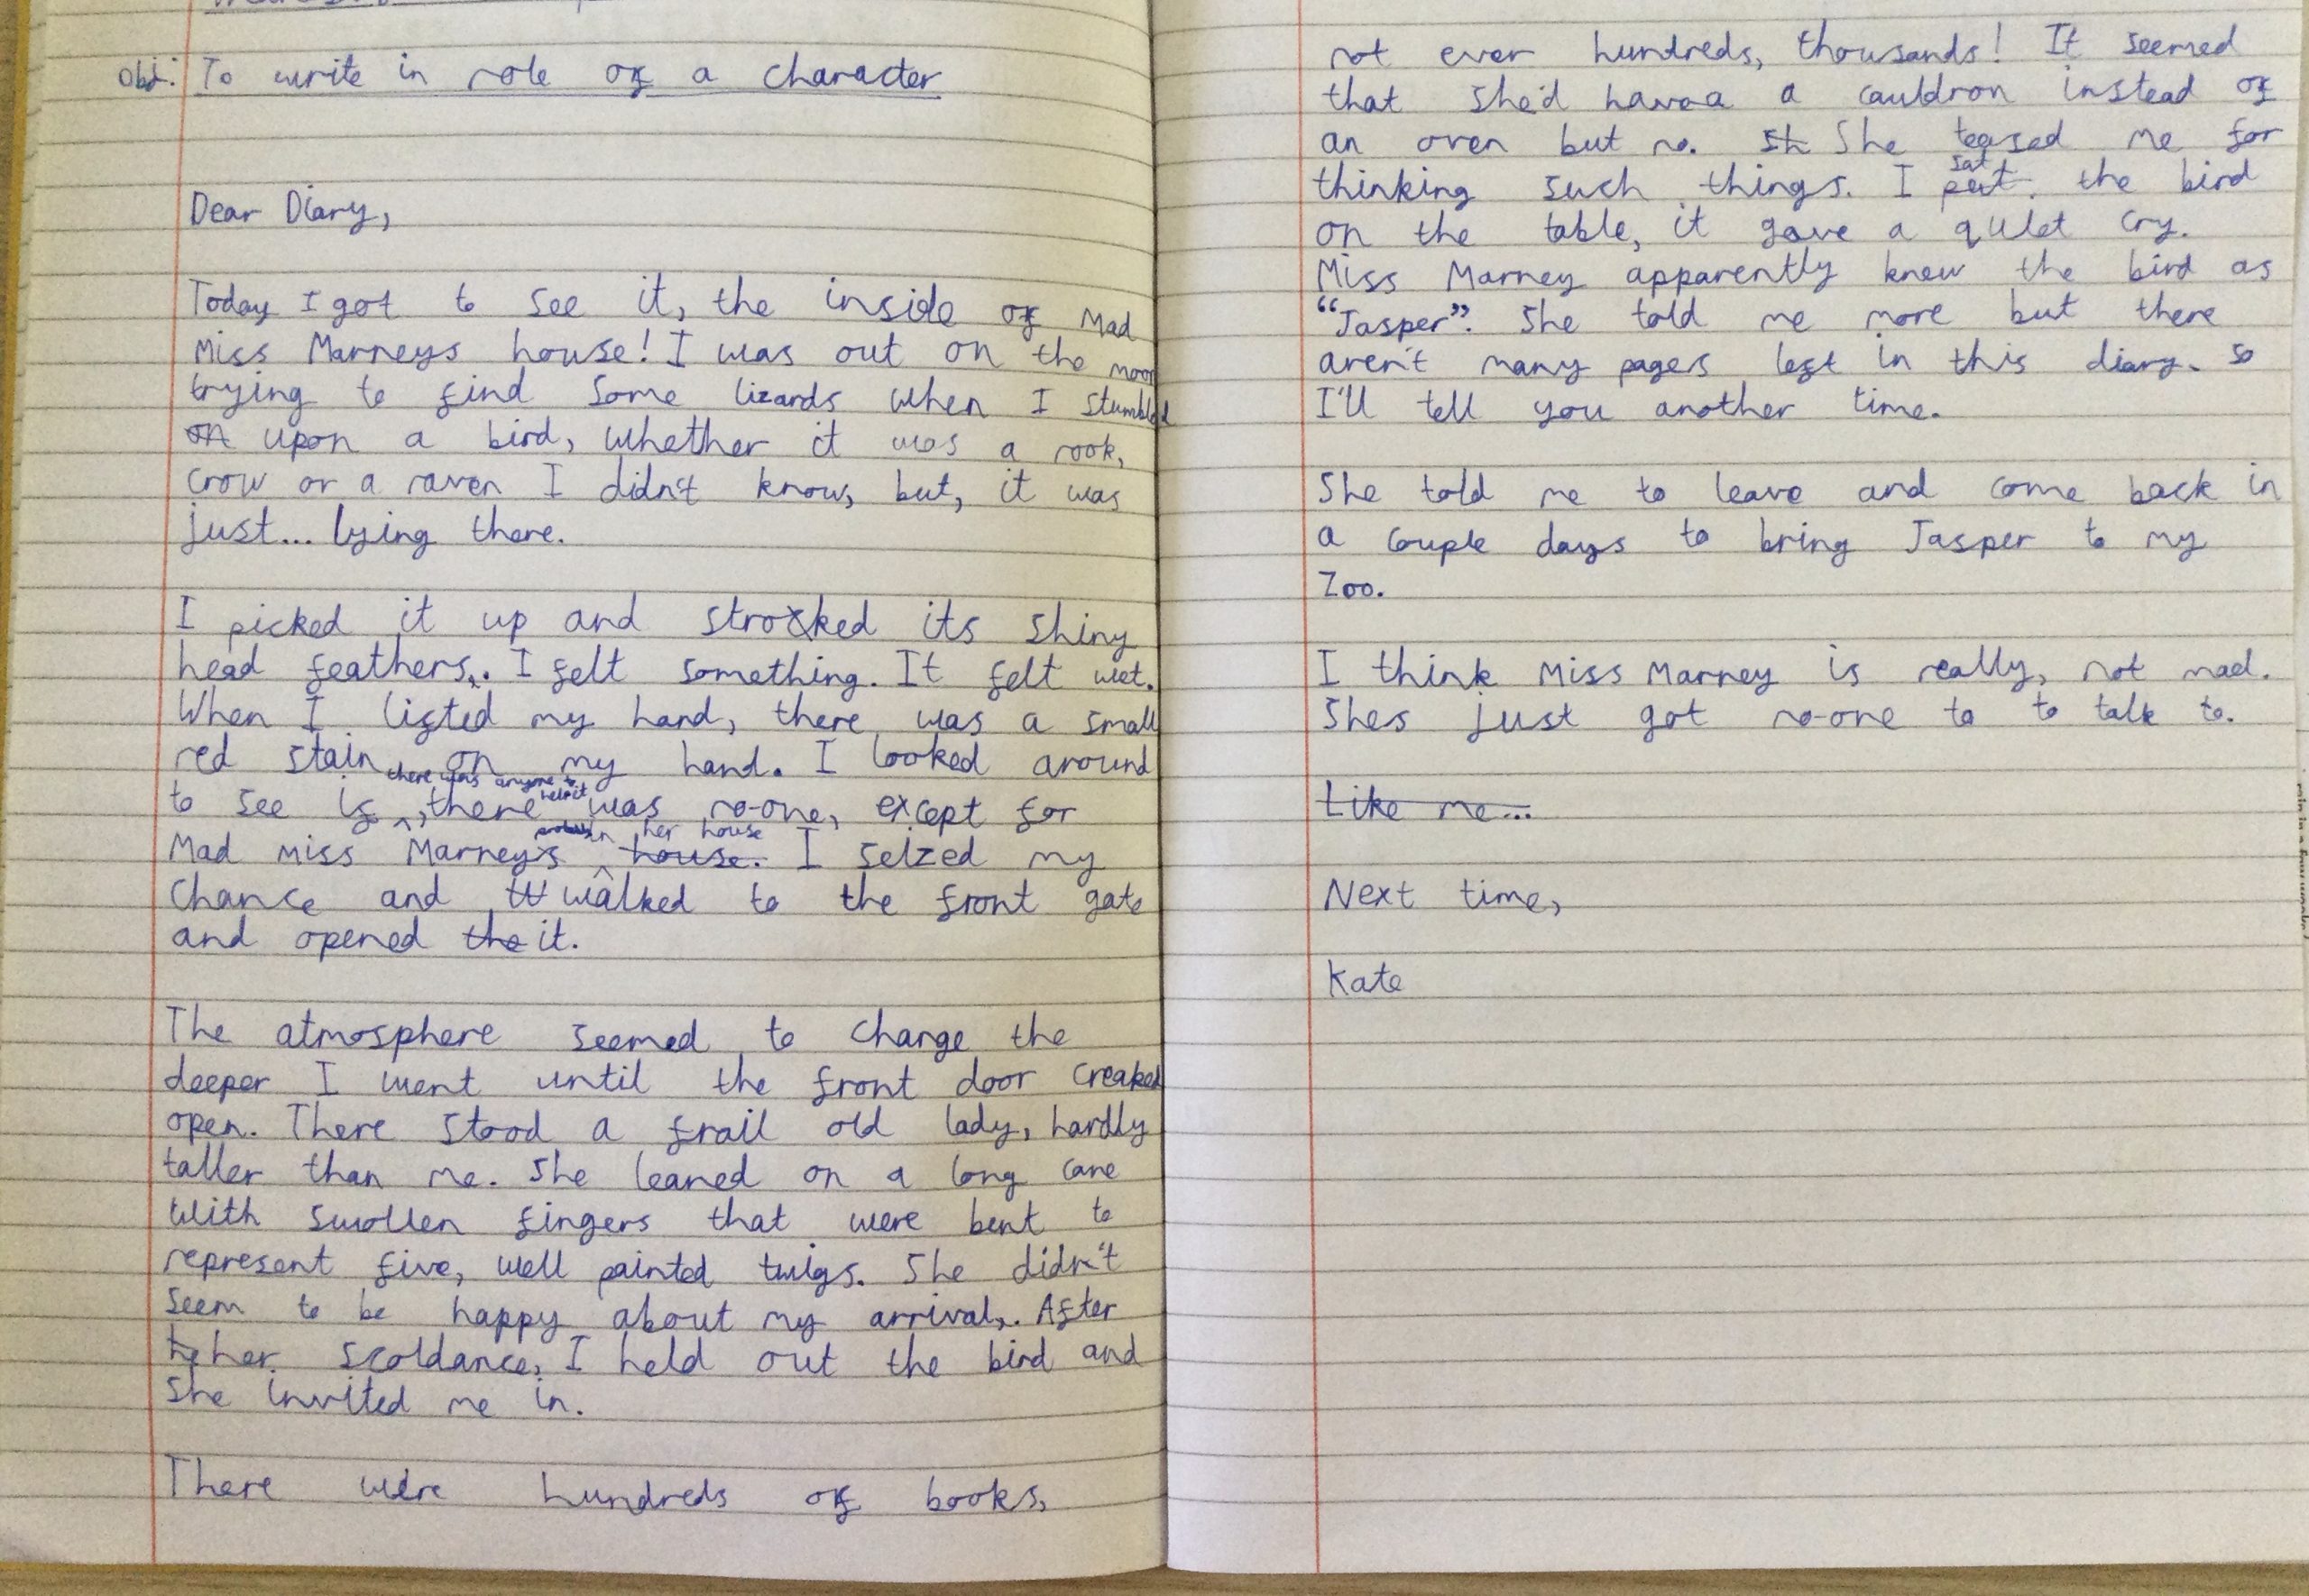 Obj: To write in role of a character
Dear Diary,
Today I got to see it, the inside of Mad
Miss Marneys house! I was out on the moor
trying to find some lizards when I stumbled
on upon a bird, whether it was a rook,
crow or a raven I didn't know, but, it was
just... lying there.
I picked it up and stroked its shiny
head feathers. I felt something. It felt wet.
When I lifted my hand, there was a small
red stain on my hand. I looked around
there was anyone to
help it
to see if, there was no-one, except for
probably in her house
Mad Miss Marney's house. I seized my
chance and walked to the front gate
and opened the it.
The atmosphere seemed to change the
deeper I went until the front door creaked
open. There stood a frail old lady, hardly
taller than me. She leaned on a long cane
with swollen fingers that were bent to
represent five, well painted twigs. She didn't
seem to be happy about my arrival. After
her scoldance, I held out the bird and
she invited me in.
There were hundreds of books,
not ever hundreds, thousands! It seemed
that she'd have a cauldron instead of
an oven but no. Sh She teased me for
sat
thinking such things. I put the bird
on the table, it gave a quiet cry.
Miss Marney apparently knew the bird as
"Jasper". She told me more but there
aren't many pages left in this diary. So
I'll tell you another time.
She told me to leave and come back in
a couple days to bring Jasper to my
Zoo.
I think Miss Marney is really, not mad.
Shes just got no-one to to talk to.
Like me...
Next time,
Kate